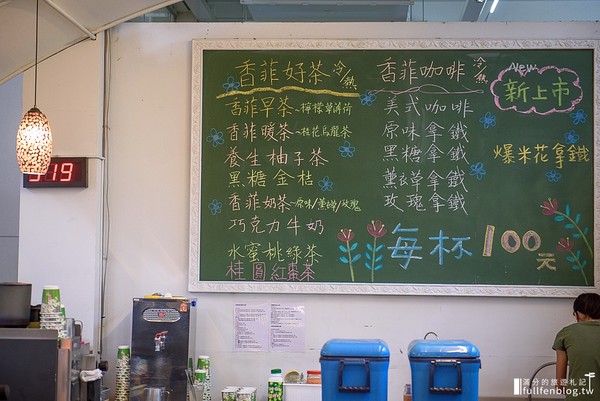 香菲好茶 冷/熱
香菲早茶~檸檬草薄荷
香菲暖茶~桂花烏龍茶
養生柚子茶
黑糖金桔
香菲奶茶~原味/薰衣草/玫瑰
巧克力牛奶
水蜜桃綠茶
桂圓紅棗茶
香菲咖啡 冷/熱
美式咖啡
原味拿鐵
黑糖拿鐵
薰衣草拿鐵
玫瑰拿鐵
每杯100元
New
新上市
爆米花拿鐵
滿分的旅遊札記
fullfenblog.tw